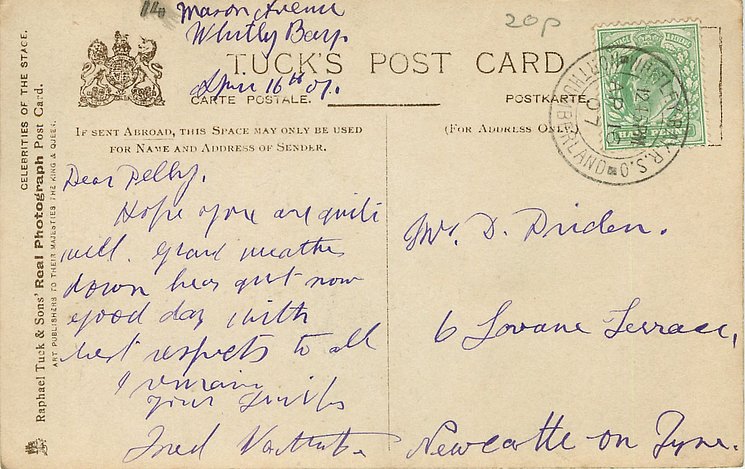 14 Mason Avenue
Whitley Bay
April 16th 07.
20p
TUCK'S POST CARD.
CARTE POSTALE.
POSTKARTE.
IF SENT ABROAD, THIS SPACE MAY ONLY BE USED
FOR NAME AND ADDRESS OF SENDER.
(FOR ADDRESS ONLY)
WHITLEY-BAY R.S.O.
NORTHUMBERLAND
AP 16
07
HALFPENNY
CELEBRITIES OF THE STAGE.
Raphael Tuck & Sons' Real Photograph Post Card.
ART PUBLISHERS TO THEIR MAJESTIES THE KING & QUEEN.
Dear
Hope you are quite
well. Grand weather
down here just now
good day with
best respects to all
I remain
your
Fred
Mr. D. Driden.
6 Lovaine Terrace,
Newcastle on Tyne.